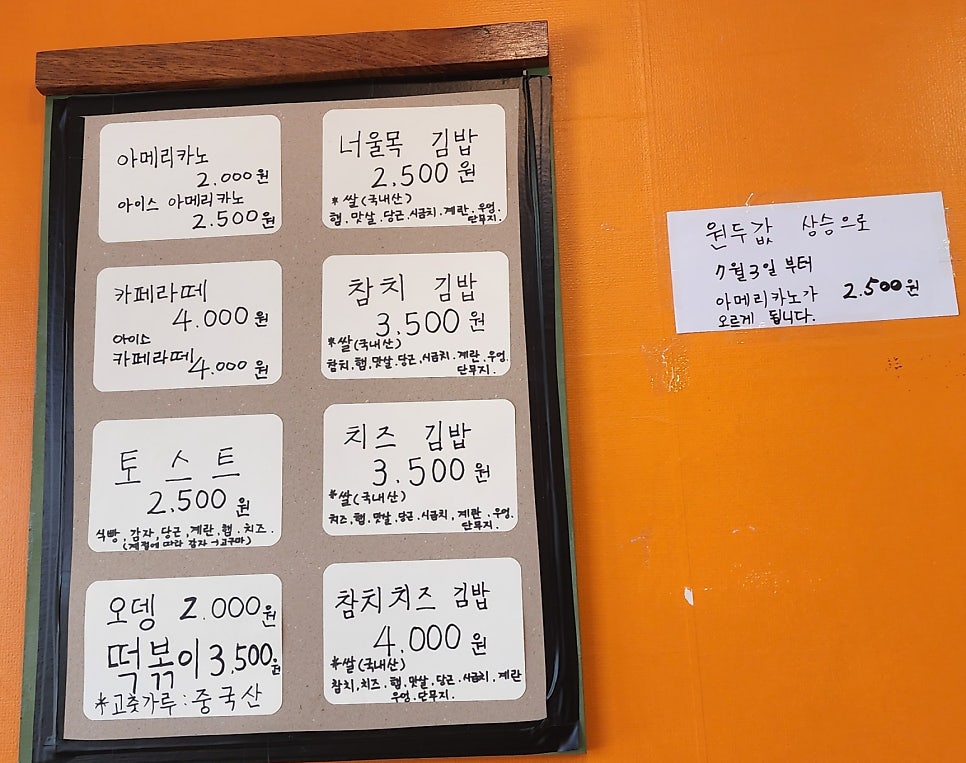 아메리카노
2.000원
아이스 아메리카노
2.500원
카페라떼
4.000원
아이스
카페라떼
4.000원
토스트
2.500원
식빵, 감자, 당근, 계란, 햄, 치즈.
(계절에 따라 감자→고구마)
오뎅 2.000원
떡볶이 3,500원
*고춧가루: 중국산
너울목 김밥
2,500원
*쌀(국내산)
햄. 맛살. 당근. 시금치. 계란. 우엉.
단무지.
참치 김밥
3.500원
*쌀(국내산)
참치. 햄. 맛살. 당근. 시금치. 계란. 우엉.
단무지.
치즈 김밥
3.500원
*쌀(국내산)
치즈. 햄. 맛살. 당근. 시금치. 계란. 우엉.
단무지.
참치치즈 김밥
4.000원
*쌀(국내산)
참치. 치즈. 햄. 맛살. 당근. 시금치. 계란
우엉. 단무지.
원두값 상승으로
7월3일 부터
아메리카노가 2.500원
오르게 됩니다.